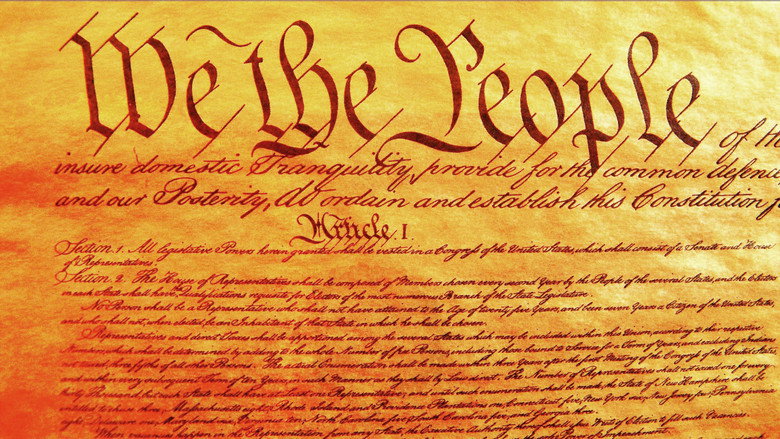 We the People of th
insure domestic Tranquility, provide for the common defence
and our Posterity, do ordain and establish this Constitution f
Article I
Section 1. All legislative Powers herein granted shall be vested in a Congress of the United States, which shall consist of a Senate and House
of Representatives.
Section 2. The House of Representatives shall be composed of Members chosen every second Year by the People of the several States, and the Electors
in each State shall have the Qualifications requisite for Electors of the most numerous Branch of the State Legislature.
No Person shall be a Representative who shall not have attained to the Age of twenty five Years, and been seven Years a Citizen of the United States,
and who shall not, when elected, be an Inhabitant of that State in which he shall be chosen.
Representatives and direct Taxes shall be apportioned among the several States which may be included within this Union, according to their respective
Numbers, which shall be determined by adding to the whole Number of free Persons, including those bound to Service for a Term of Years, and excluding Indians
not taxed, three fifths of all other Persons. The actual Enumeration shall be made within three Years after the first Meeting of the Congress of the United States
and within every subsequent Term of ten Years, in such Manner as they shall by Law direct. The Number of Representatives shall not exceed one for every
thirty Thousand, but each State shall have at Least one Representative; and until such enumeration shall be made, the State of New Hampshire shall be
entitled to chuse three, Massachusetts eight, Rhode Island and Providence Plantations one, Connecticut five, New York six, New Jersey four, Pennsylvania
eight, Delaware one, Maryland six, Virginia ten, North Carolina five, South Carolina five, and Georgia three.
When vacancies happen in the Representation from any State, the Executive Authority thereof shall issue Writs of Election to fill such Vacancies.